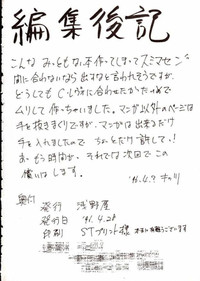 編集後記
こんな みっともない本作ってしまって スミマセン
間に合わないなら 出すなと言われそうですが、
どうしても C☆らうに合わせたかったので
ムリして作っちゃいました。マンガ以外のページは
手を抜きまくりですが、マンガは出来るだけ
手を入れましたので ちょっとだけ許して。!
あ、もう時間が、それでは次回でこの
償いはします。
'96.4.9
奥付
発行 浅野屋
発行日 '96.4.28
印刷 STプリント様 本当に有難うございます